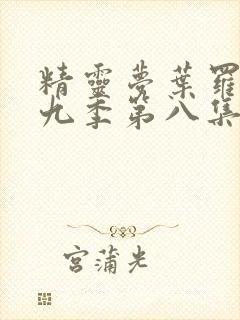 精靈夢葉羅
九季第八集
宮蒲光